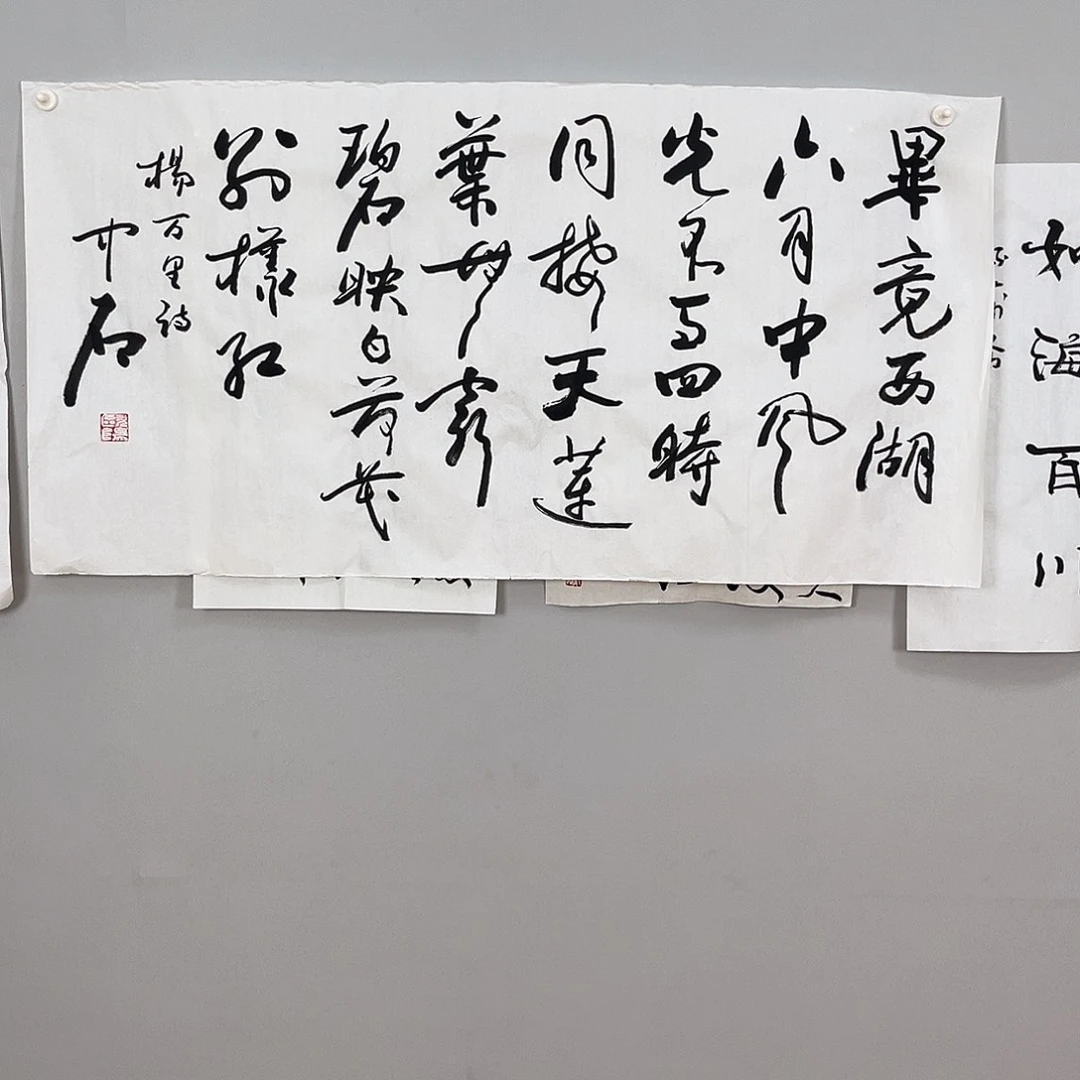 如海百川
畢竟西湖
六月中風
光不与四時
同接天蓮
葉無窮
碧映日荷花
别樣红
楊万里诗
中石